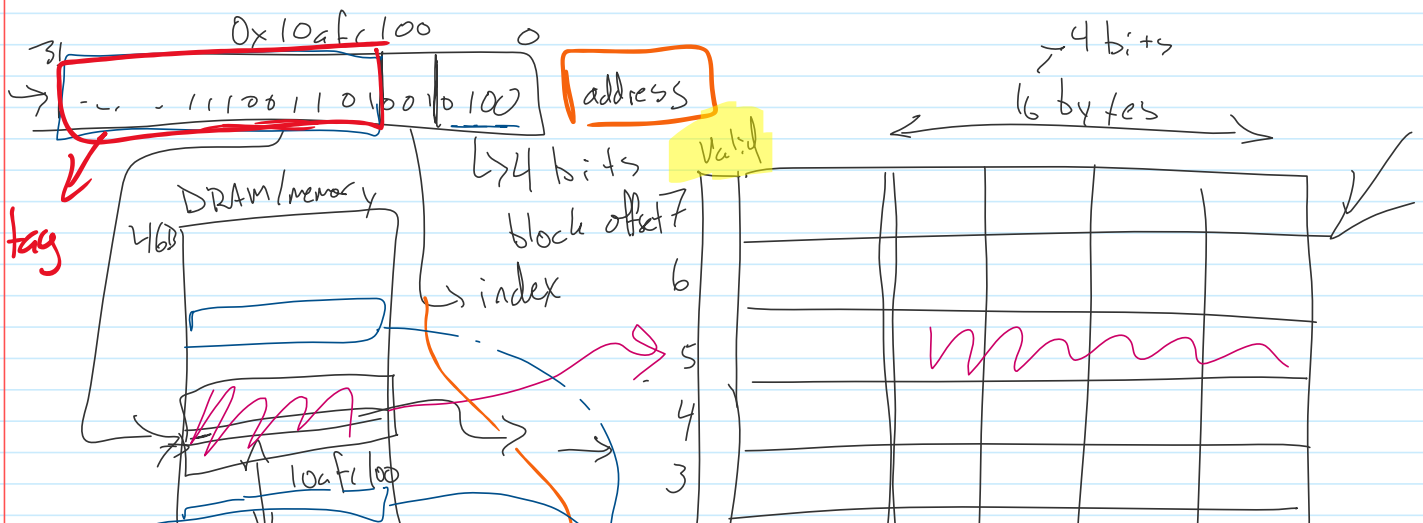 0x10afc100
31 0
1111001101001010100
address
4 bits
16 bytes
valid
4 bits
block offset
tag
DRAM/memory
4GB
index
7
6
5
4
3
10afc100